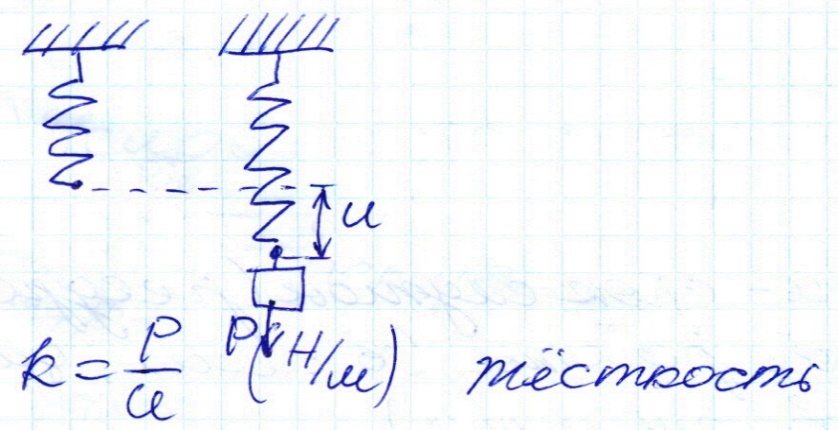 u
P
k = P/u (Н/м) жёсткость